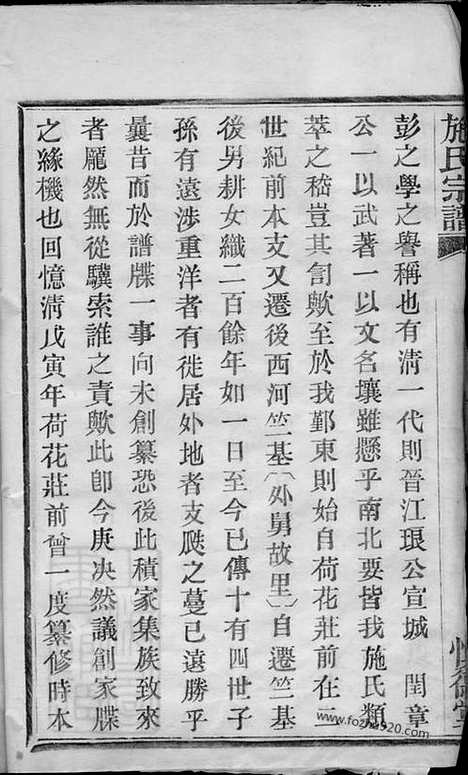 施氏宗譜
彭之學之譽稱也有清一代則晉江琅公宣城 閏章
公一以武著一以文名壤雖懸乎南北要皆我施氏類
萃之嵇豈其創歟至於我鄞東則始自荷花莊前在二
世紀前本支又遷後西河竺基〔外舅故里〕自遷竺基
後男耕女織二百餘年如一日至今已傳十有四世子
孫有遠涉重洋者有徙居外地者支瓞之蔓已遠勝乎
曩昔而於譜牒一事向未創纂恐後此積家集族致來
者龎然無從驥索誰之責歟此卽今庚决然議創家牒
之緣機也回憶清戊寅年荷花莊前曾一度纂修時本
www.fozhu920.com